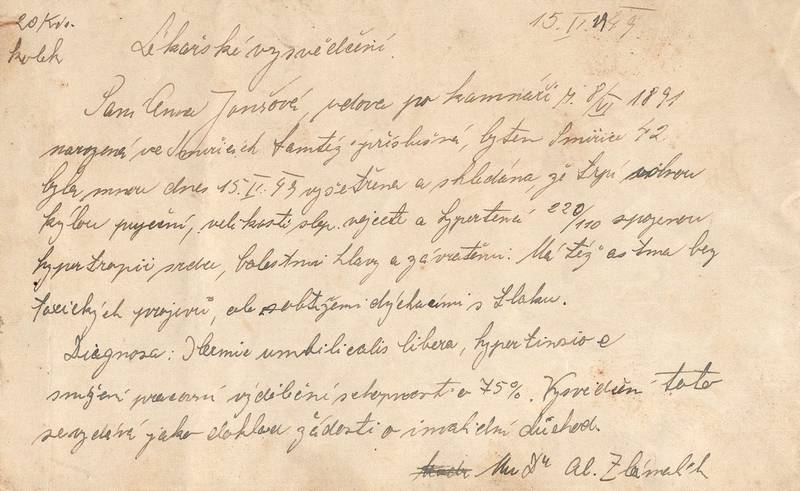 20 Kčs. 15.II.1949.
kolek Lékařské vysvědčení.
Paní Anna Jonšová, vdova po kamnáři n. 8/VI 1891
narozená ve Smiřicích tamtéž příslušná, bytem Smiřice 42
byla mnou dnes 15.II.49 vyšetřena a shledána že trpí
kýlou pupeční, velikosti slep. vejcete a hypertensí 220/110 spojenou
hypertropií srdce, bolestmi hlavy a závratěmi. Má též astma bez
toxických projevů, ale s obtížemi dýchacími s tlaku.
Diagnosa: Hernie umbilicalis libera, hypertensio e
snížení pracovní výdělečné schopnosti o 75%. Vysvědčení toto
se vydává jako doklad žádosti o invalidní důchod.
Mu Dr Al. Zlámalík